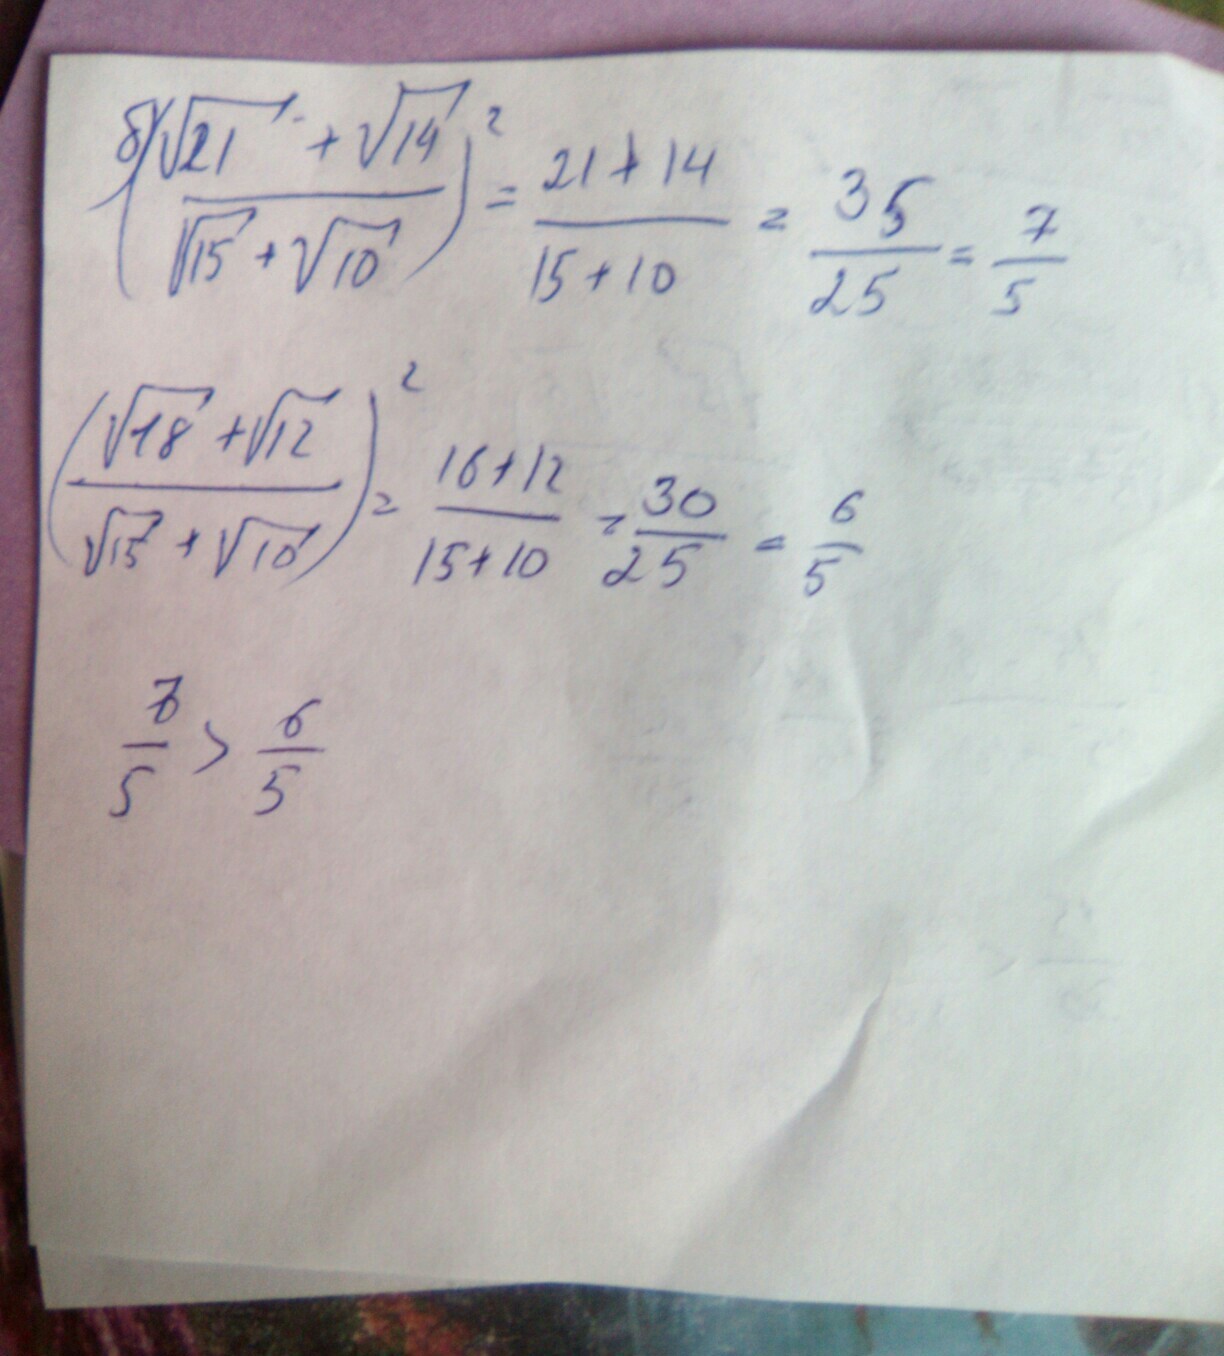 б) (√21 + √14 / √15 + √10)² = 21 + 14 / 15 + 10 = 35 / 25 = 7 / 5
(√18 + √12 / √15 + √10)² = 16 + 12 / 15 + 10 = 30 / 25 = 6 / 5
7 / 5 > 6 / 5